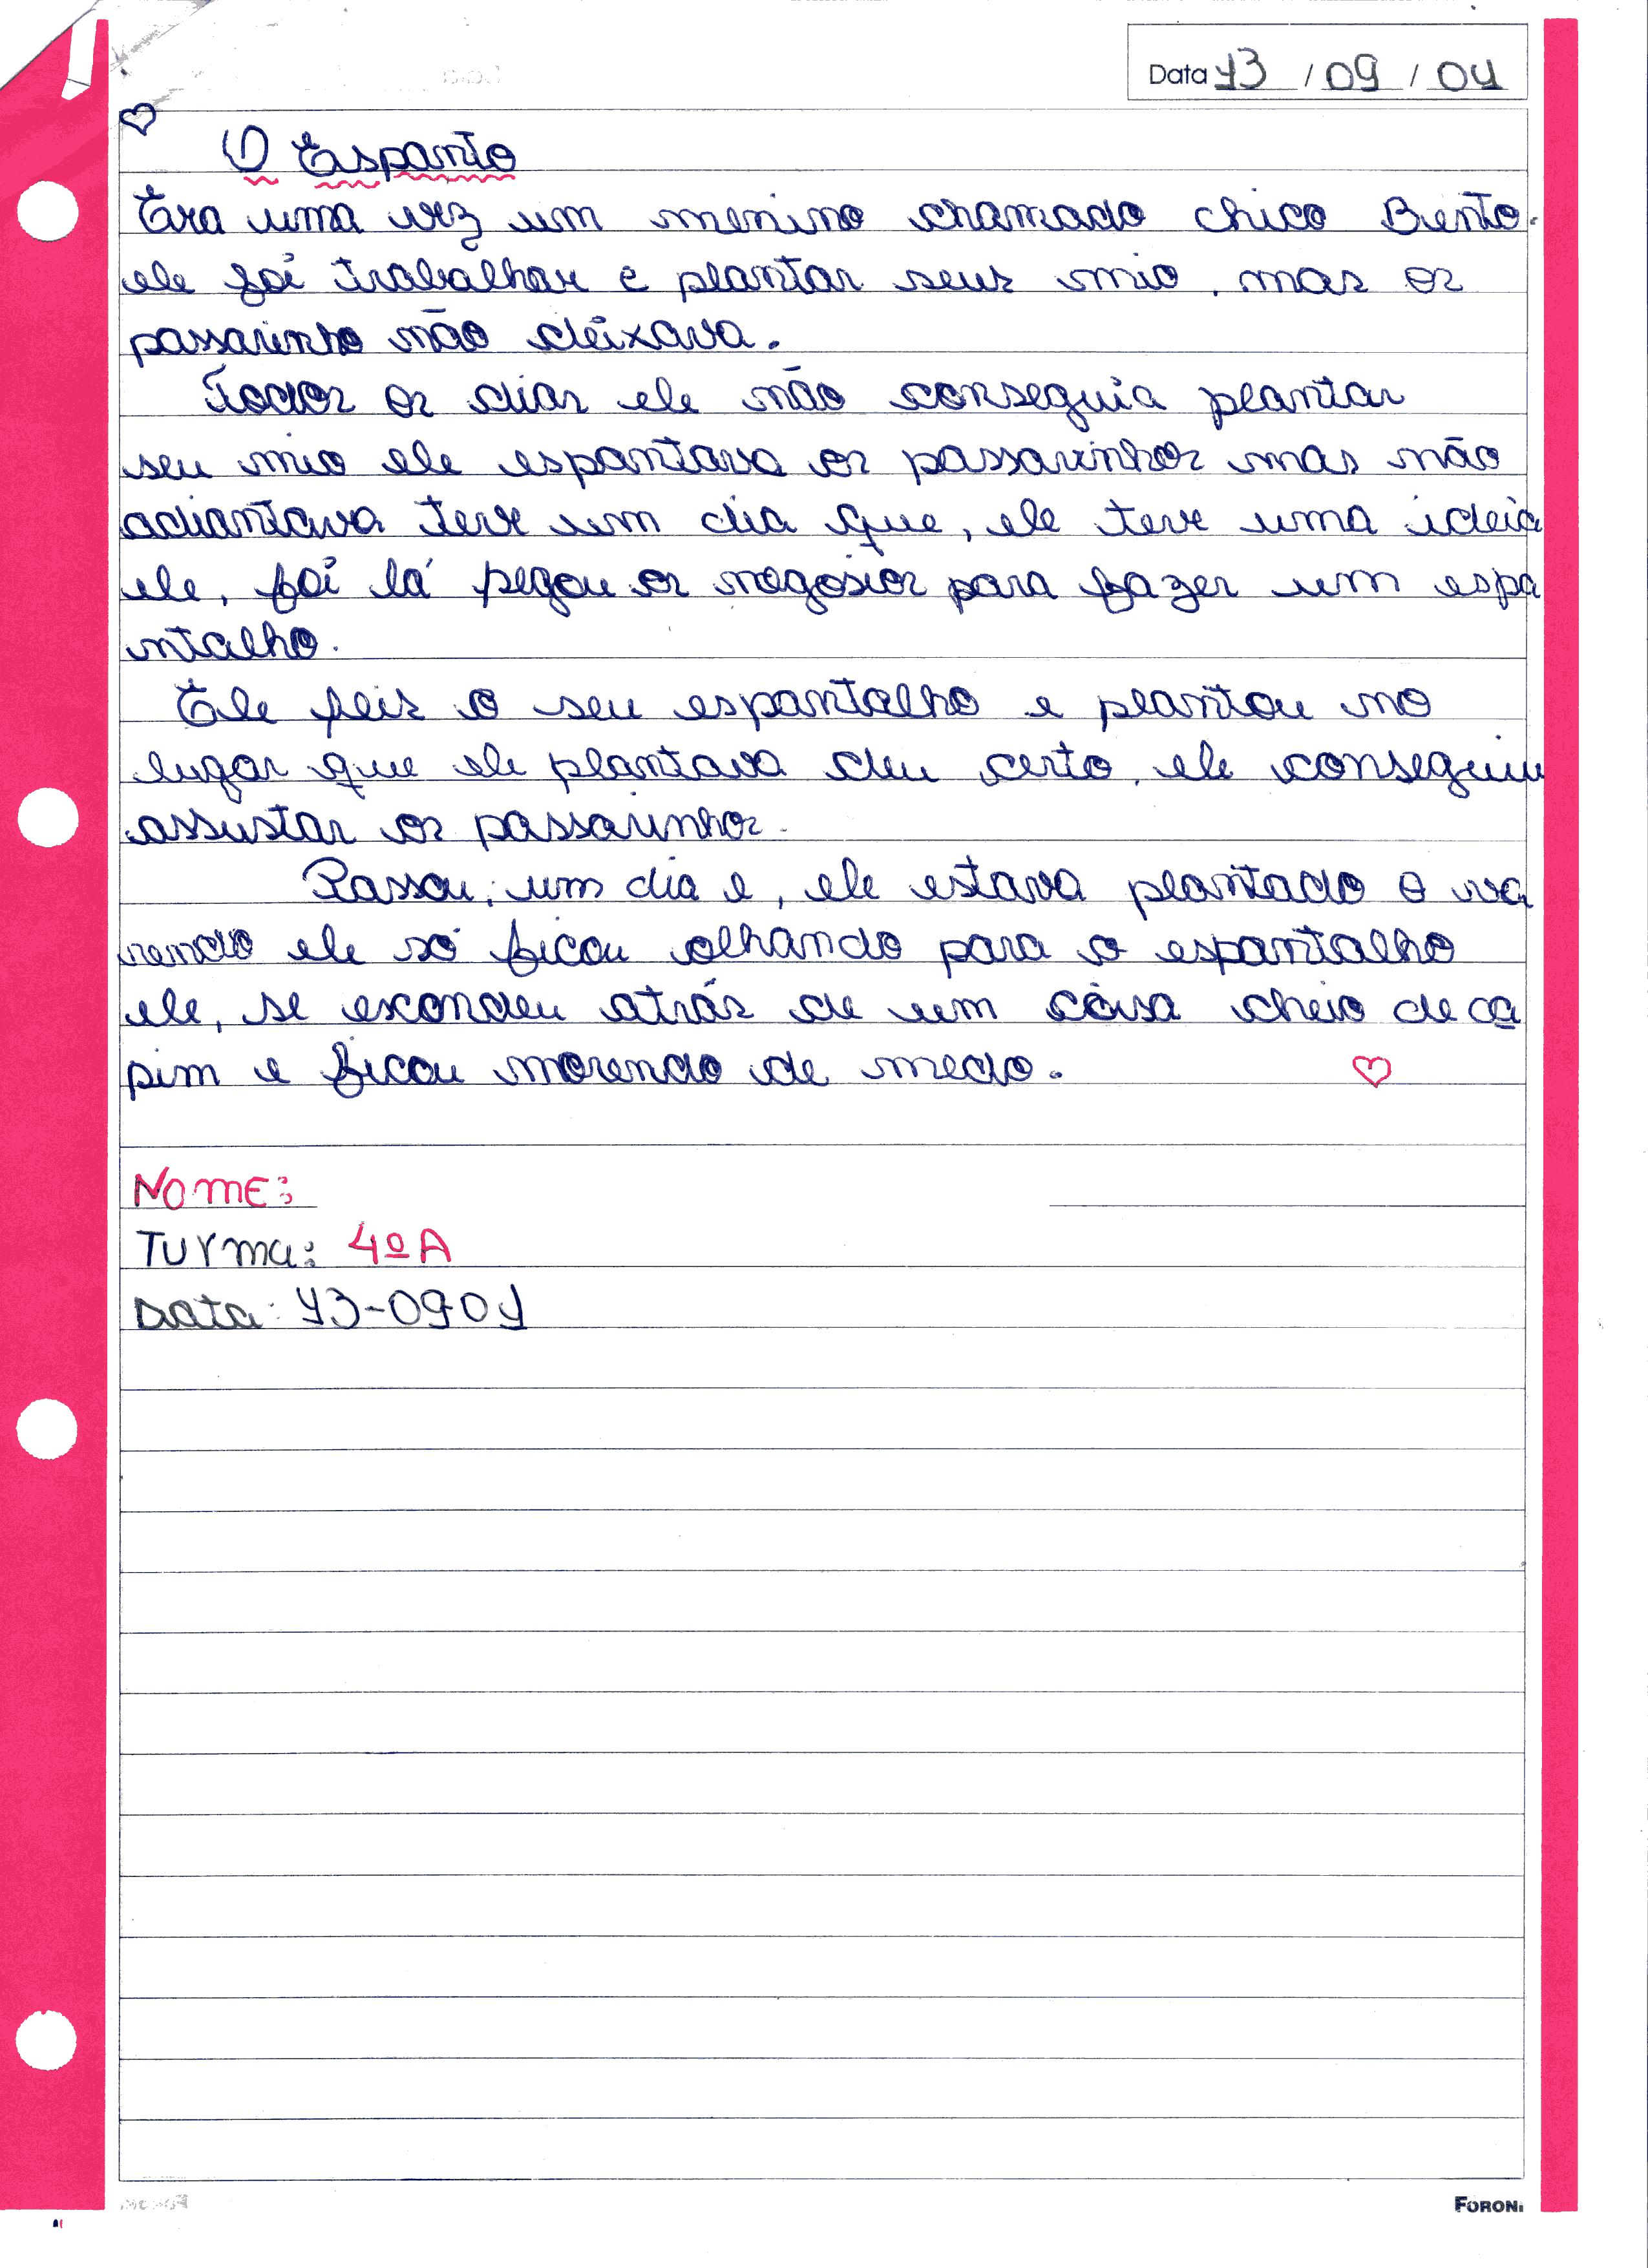 Data 13 / 09 / 04
O Espanto
Era uma vez um menino chamado chico Bento.
ele foi trabalhar e plantar seus mio, mas os
passarinho não deixava.
Todos os dias ele não conseguia plantar
seu mio ele espantava os passarinhos mas não
adiantava teve um dia que, ele teve uma ideia
ele, foi lá pegou os negosios para fazer um espa
ntalho.
Ele feis o seu espantalho e plantou no
lugar que ele plantava deu certo, ele conseguiu
assustar os passarinhos.
Passou, um dia e, ele estava plantado e va
rendo ele só ficou olhando para o espantalho
ele, se escondeu atrás de um coisa cheio de ca
pim e ficou morendo de medo.
Nome:
Turma: 4ºA
Data: 13-09 04
FORONI